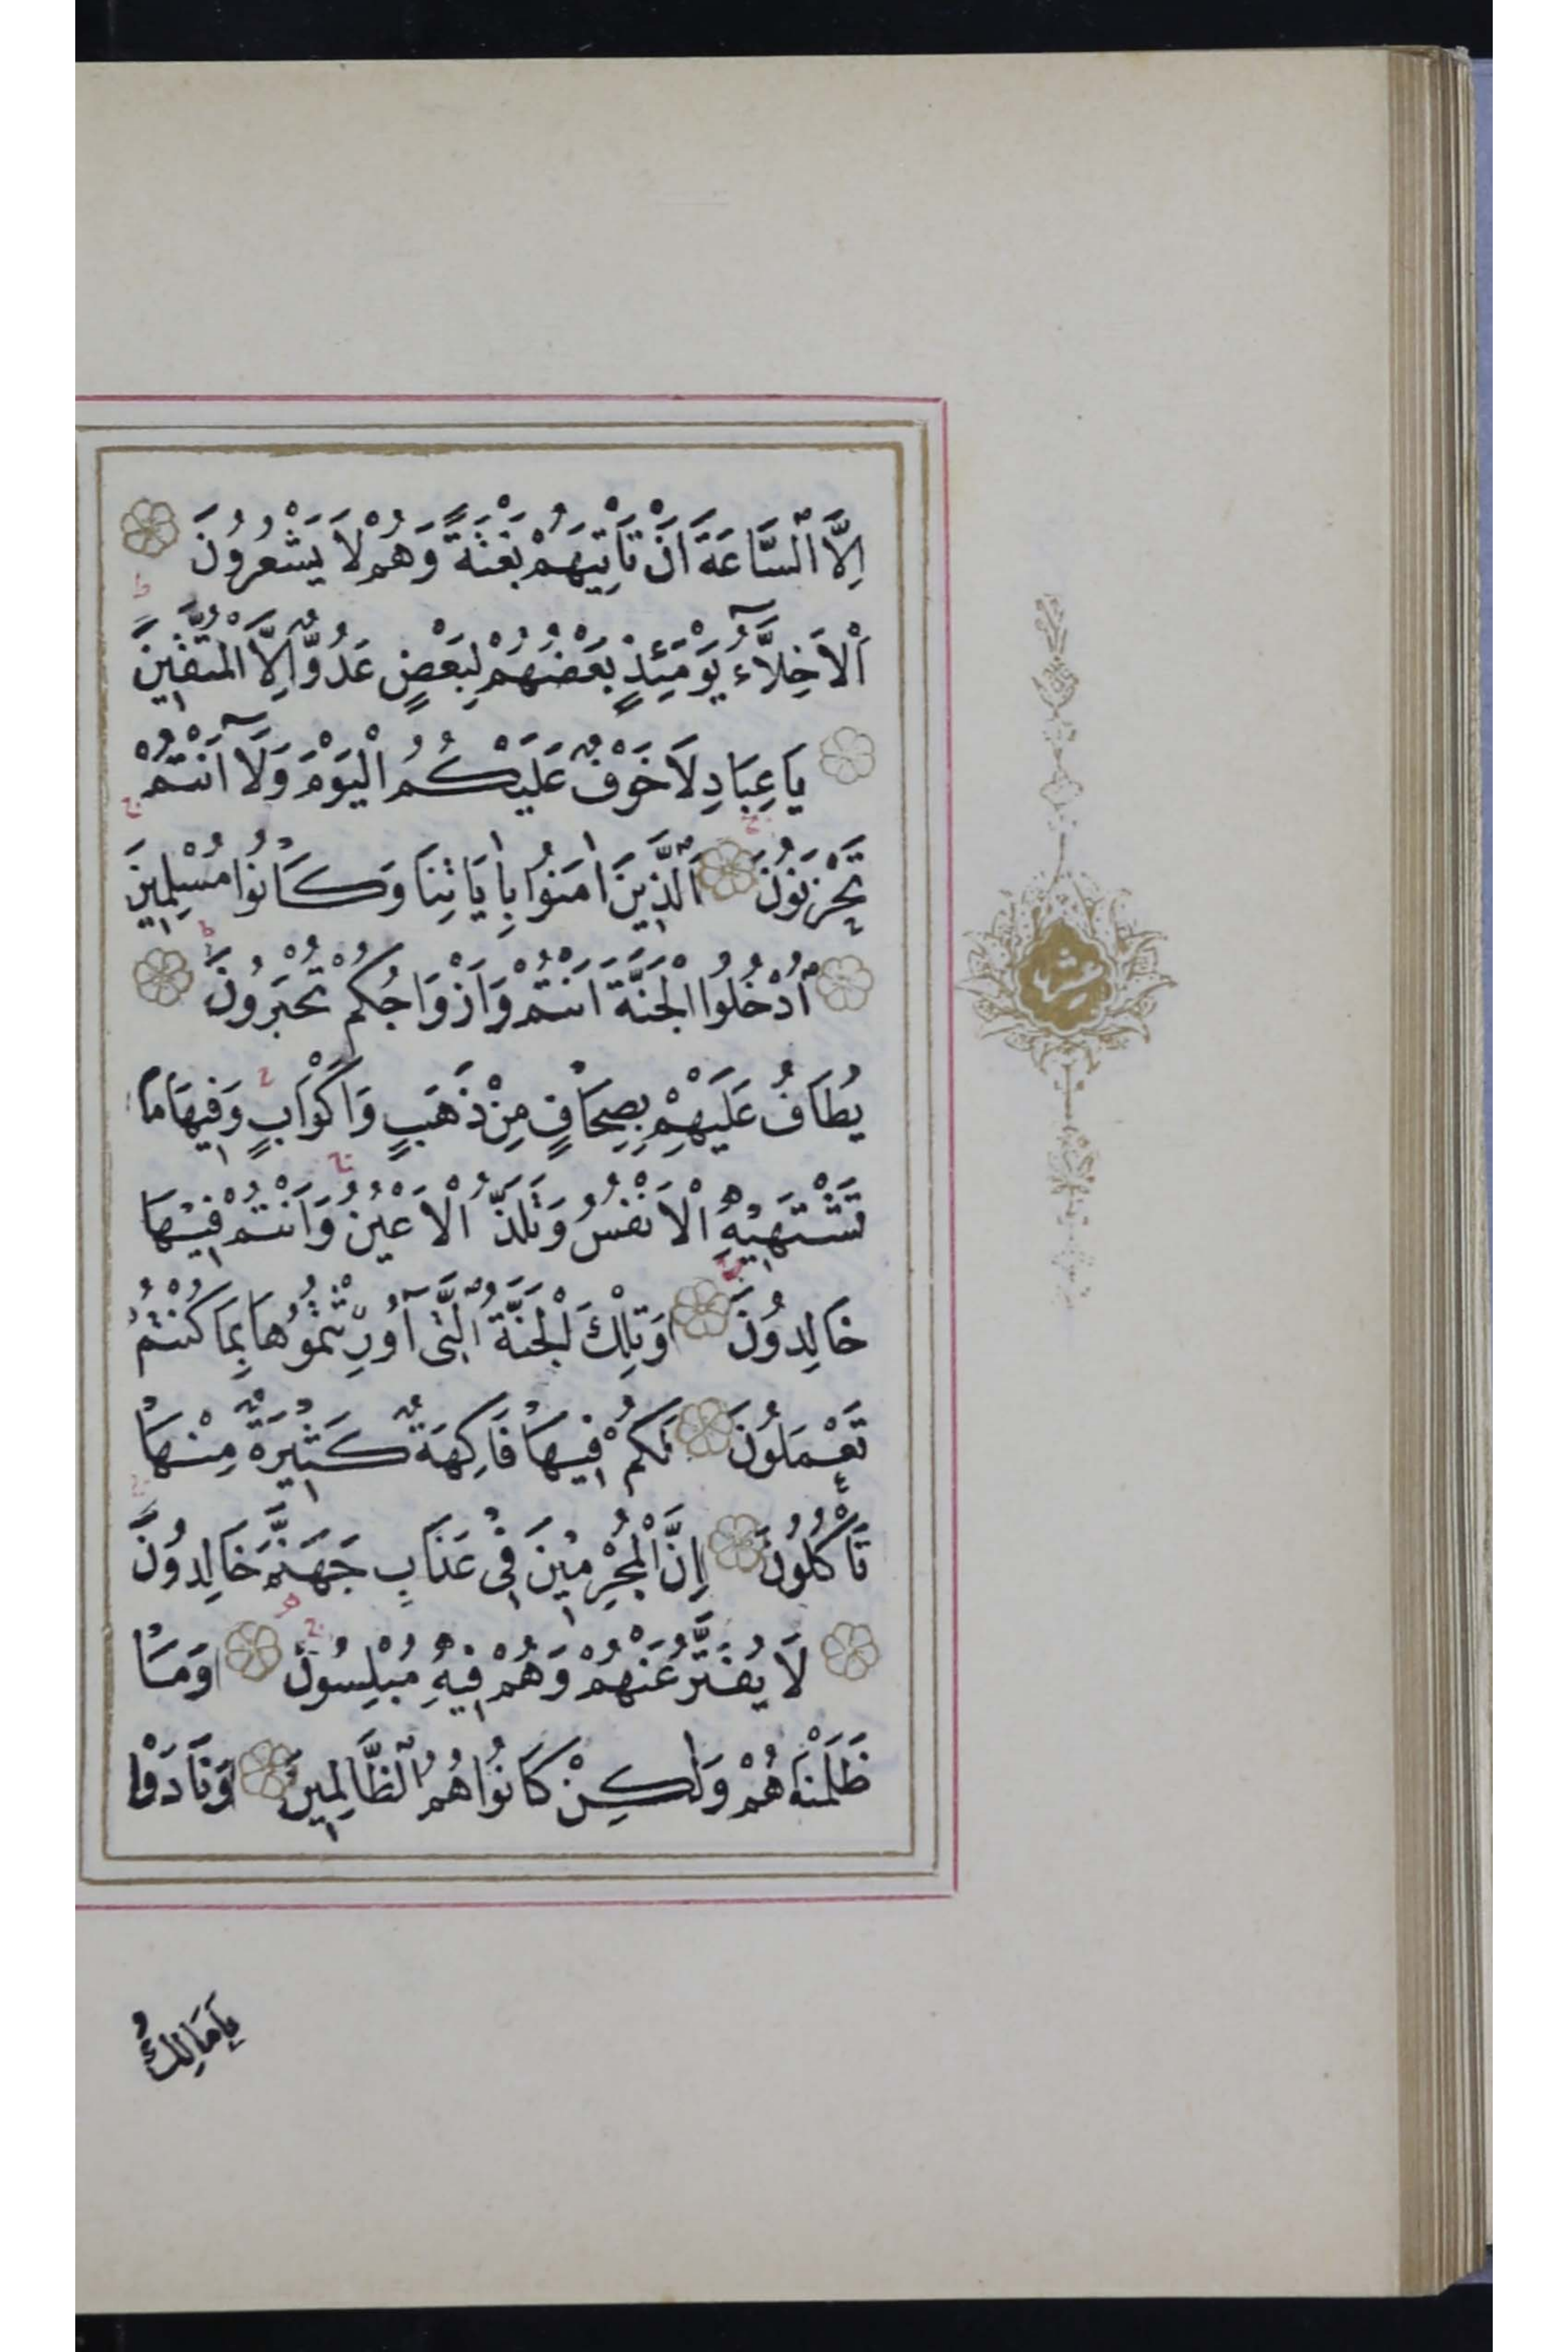 اِلَّا السَّاعَةَ اَنْ تَأْتِيَهُمْ بَغْتَةً وَهُمْ لَا يَشْعُرُونَ
اَلْاَخِلَّآءُ يَوْمَئِذٍ بَعْضُهُمْ لِبَعْضٍ عَدُوٌّ اِلَّا الْمُتَّقِينَ
يَا عِبَادِ لَا خَوْفٌ عَلَيْكُمُ الْيَوْمَ وَلَآ اَنْتُمْ
تَحْزَنُونَ اَلَّذِينَ اٰمَنُوا بِاٰيَاتِنَا وَكَانُوا مُسْلِمِينَ
اُدْخُلُوا الْجَنَّةَ اَنْتُمْ وَاَزْوَاجُكُمْ تُحْبَرُونَ
يُطَافُ عَلَيْهِمْ بِصِحَافٍ مِنْ ذَهَبٍ وَاَكْوَابٍ وَفِيهَا مَا
تَشْتَهِيهِ الْاَنْفُسُ وَتَلَذُّ الْاَعْيُنُ وَاَنْتُمْ فِيهَا
خَالِدُونَ وَتِلْكَ الْجَنَّةُ الَّتِى اُورِثْتُمُوهَا بِمَا كُنْتُمْ
تَعْمَلُونَ لَكُمْ فِيهَا فَاكِهَةٌ كَثِيرَةٌ مِنْهَا
تَأْكُلُونَ اِنَّ الْمُجْرِمِينَ فِى عَذَابِ جَهَنَّمَ خَالِدُونَ
لَا يُفَتَّرُ عَنْهُمْ وَهُمْ فِيهِ مُبْلِسُونَ وَمَا
ظَلَمْنَاهُمْ وَلٰكِنْ كَانُوا هُمُ الظَّالِمِينَ وَنَادَوْا
يَامَالِكُ
عشر